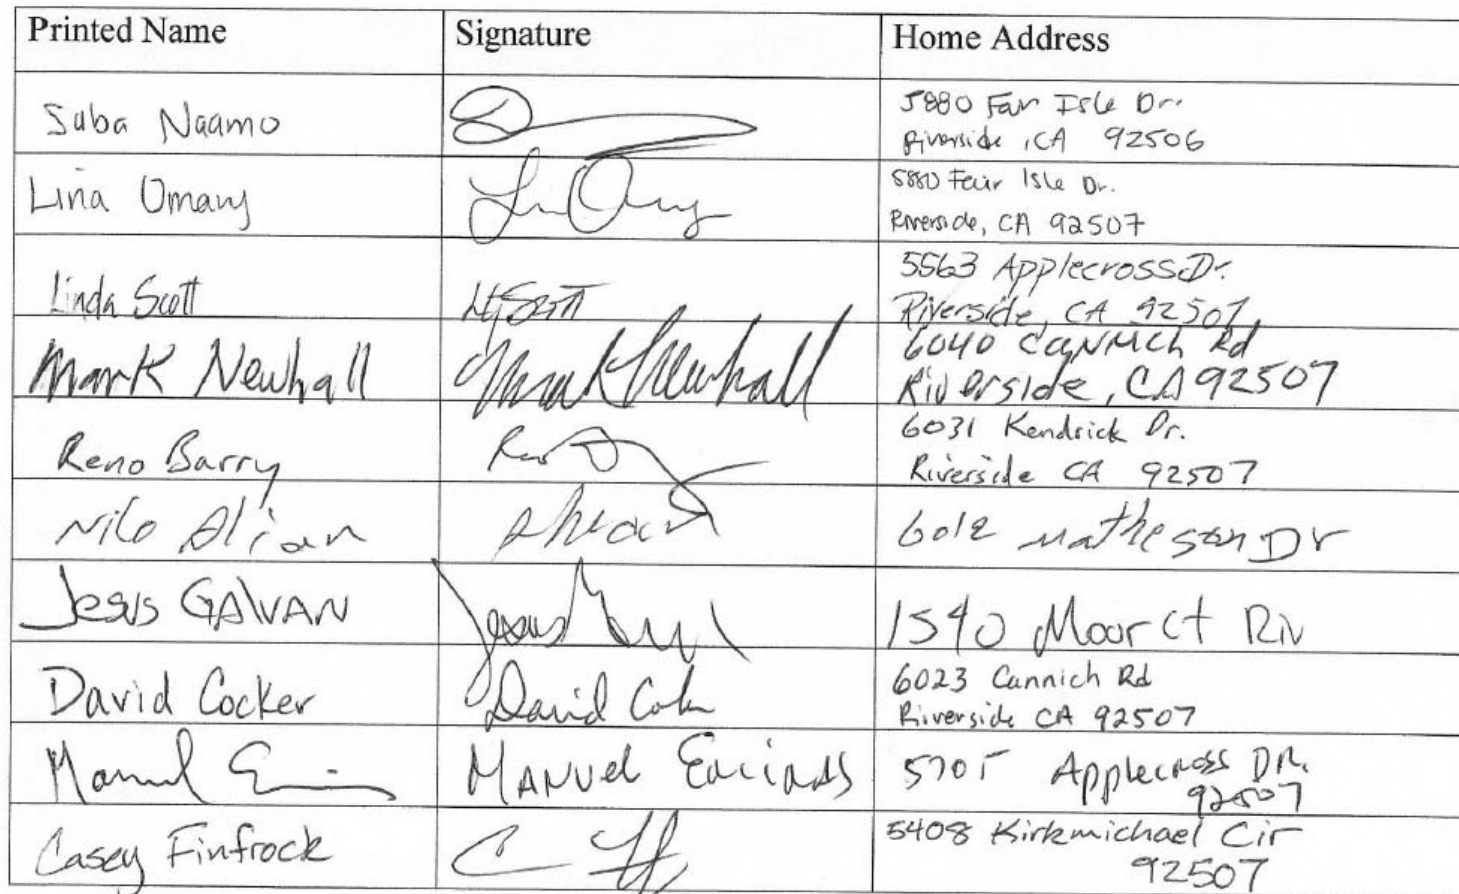 Printed Name Signature Home Address
Suba Naamo 5880 Fair Isle Dr.
Riverside, CA 92506
Lina Omary 5880 Fair Isle Dr.
Riverside, CA 92507
Linda Scott Scott 5563 Applecross Dr.
Riverside, CA 92507
Mark Newhall Mark Newhall 6040 Cannich Rd
Riverside, CA 92507
Reno Barry 6031 Kendrick Dr.
Riverside CA 92507
Nilo Alian 6012 Matheson Dr
Jesus GALVAN Jesus 1540 Moor Ct Riv
David Cocker David 6023 Cannich Rd
Riverside CA 92507
Manuel MANUel Encinas 5705 Applecross DR.
92507
Casey Finfrock 5408 Kirkmichael Cir
92507